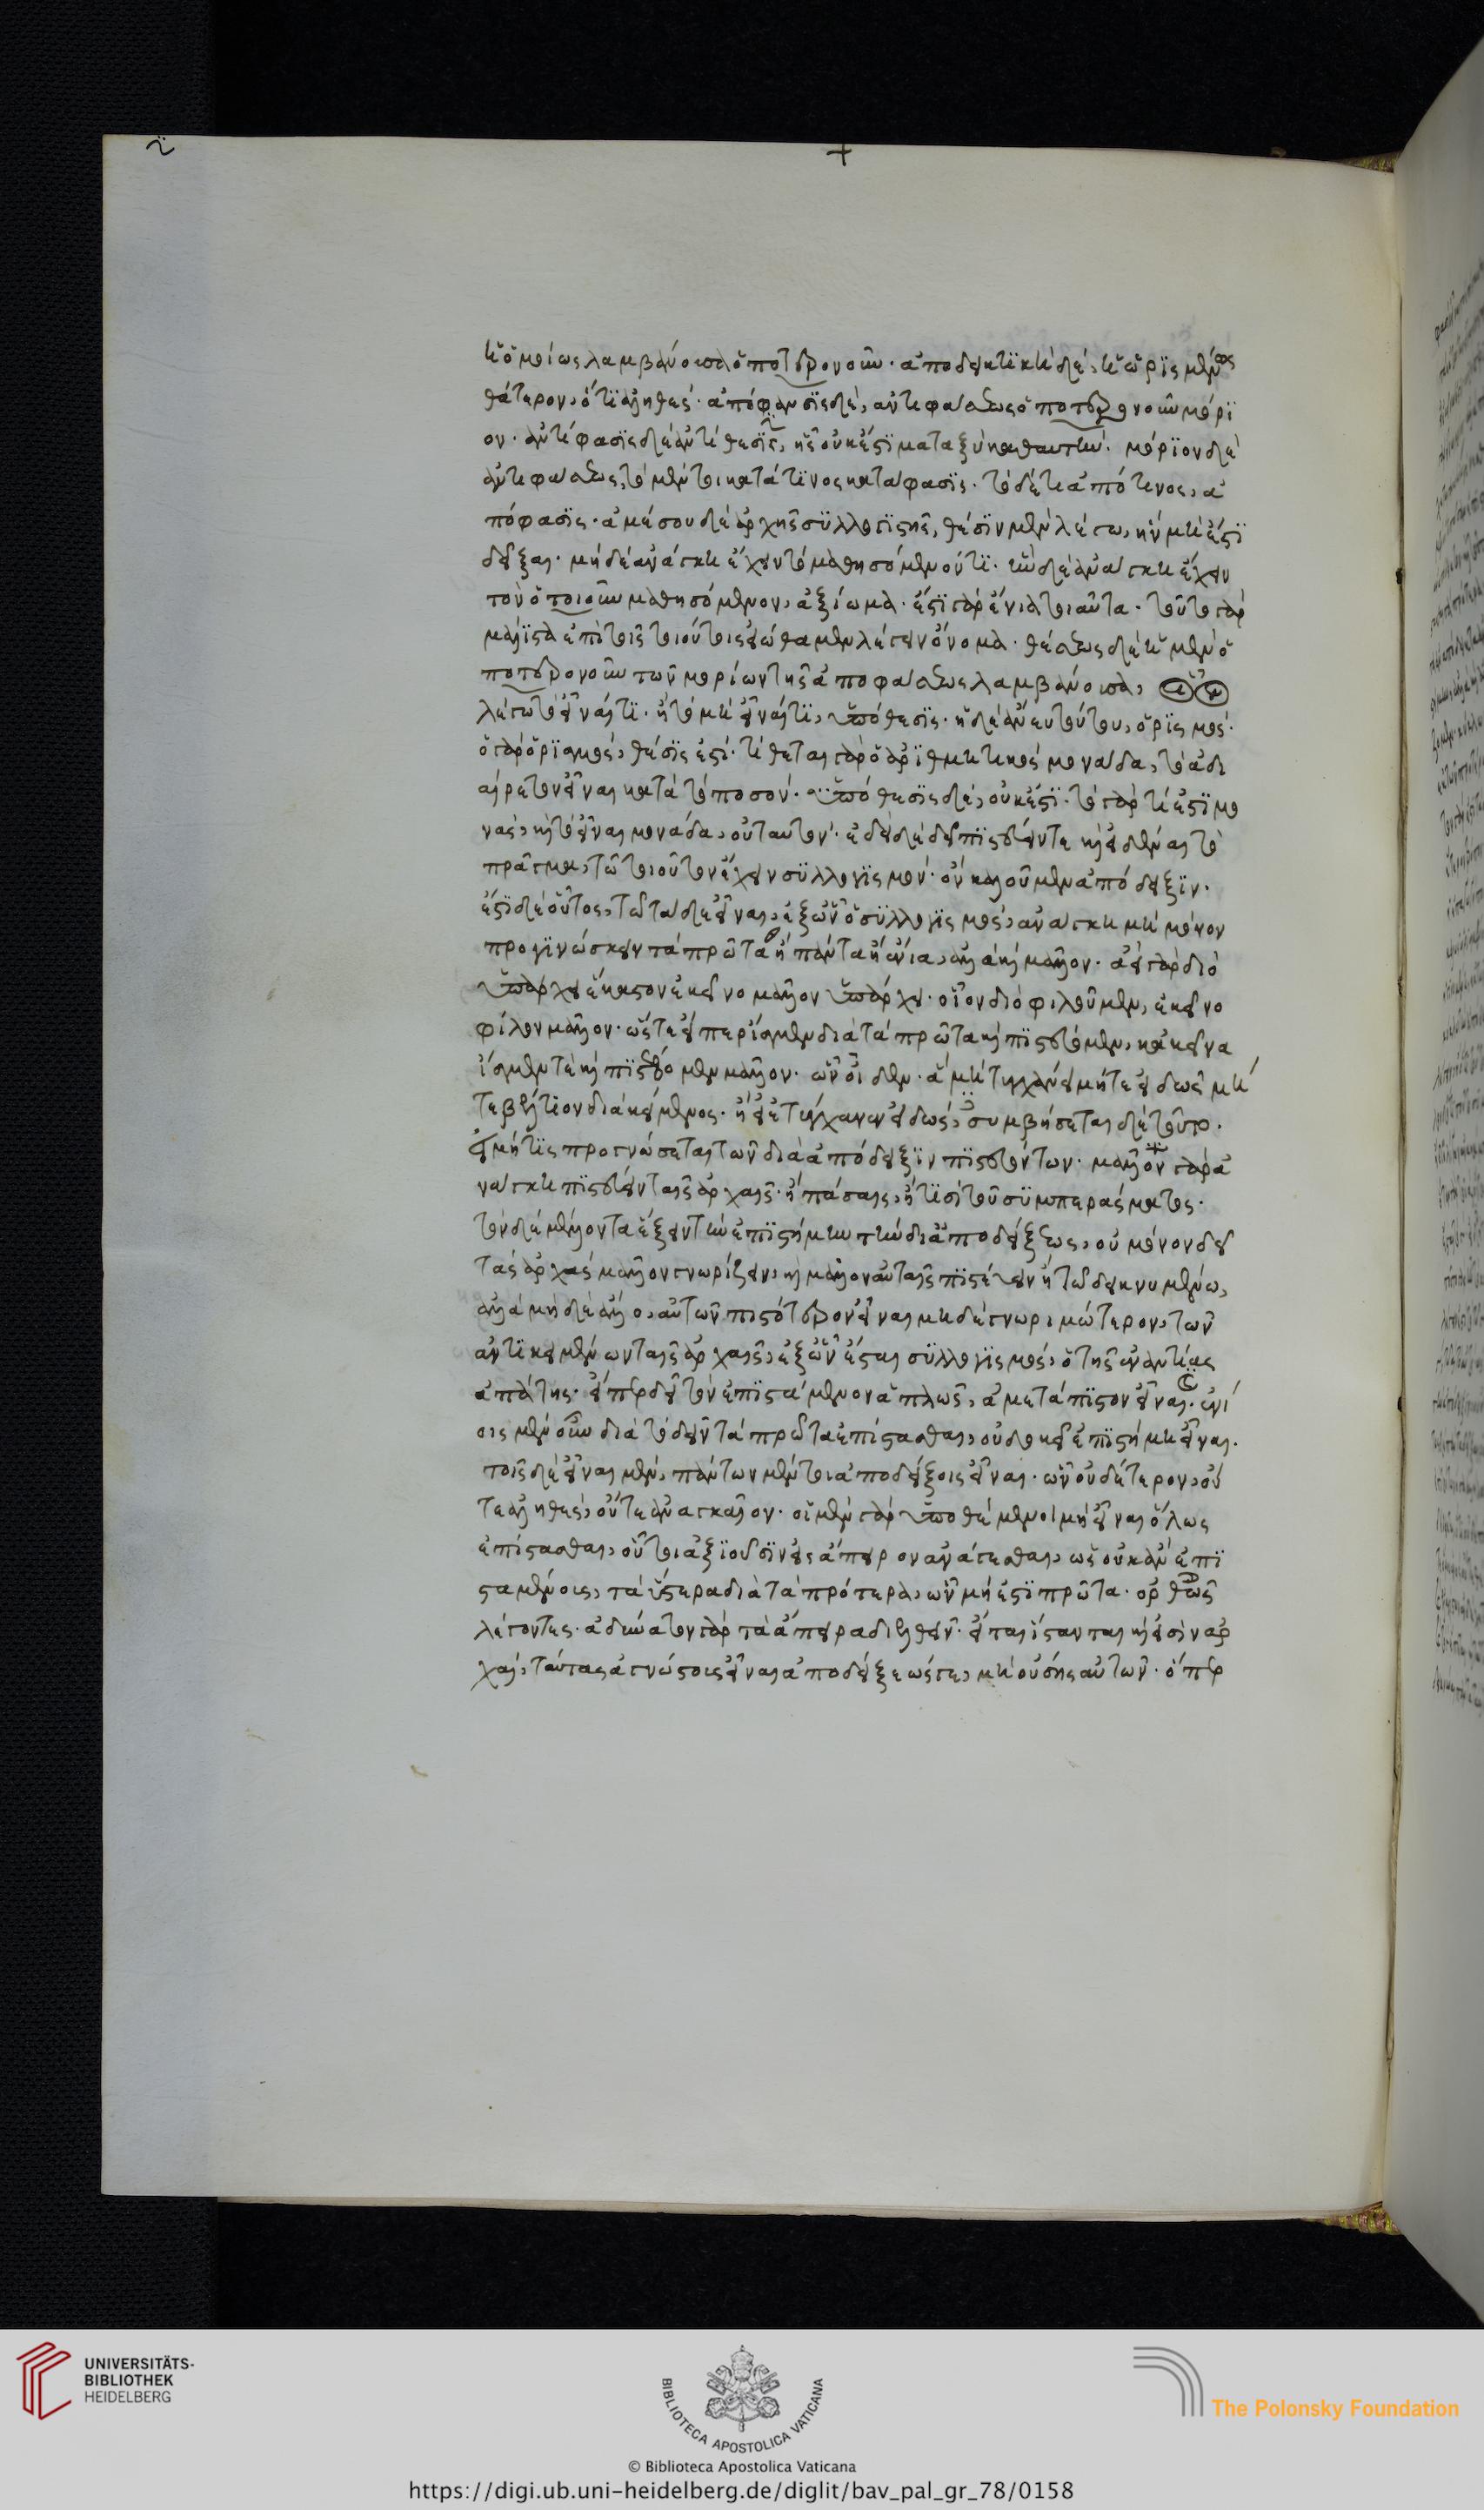 +
ἡ ὁμοίως λαμβάνουσα ὁποτερονοῦν· ἀποδεικτικὴ δὲ, ἡ ὡρισμένως
θάτερον, ὅτι ἀληθές· ἀπόφανσις δὲ, ἀντιφάσεως ὁποτερονοῦν μόρι
ον· ἀντίφασις δὲ ἀντίθεσις, ἧς οὐκ ἔστι μεταξὺ καθ' αυτήν· μόριον δὲ
ἀντιφάσεως, τὸ μὲν τὶ κατά τινος κατάφασις· τὸ δέ τι ἀπό τινος, ἀ
πόφασις· ἀμέσου δὲ ἀρχῆς συλλογιστικῆς, θέσιν μὲν λέγω, ἣν μὴ ἔστι
δεῖξαι· μηδὲ ἀνάγκη ἔχειν τὸν μαθησόμενόν τι· ἣν δὲ ἀνάγκη ἔχειν
τὸν ὁτιοῦν μαθησόμενον, ἀξίωμα· ἔστι γὰρ ἔνια τοιαῦτα· τοῦτο γὰρ
μάλιστα ἐπὶ τοῖς τοιούτοις εἰώθαμεν λέγειν ὄνομα· θέσεως δὲ ἡ μὲν ὁ
ποτερονοῦν τῶν μορίων τῆς ἀποφάσεως λαμβάνουσα,
λέγω τὸ εἶναί τι· ἢ τὸ μὴ εἶναί τι, ὑπόθεσις· ἡ δὲ ἄνευ τούτου, ὁρισμός·
ὁ γὰρ ὁρισμὸς, θέσις ἐστί· τίθεται γὰρ ὁ ἀριθμητικὸς μονάδα, τὸ ἀδι
αίρετον εἶναι κατὰ τὸ ποσόν· ὑπόθεσις δὲ, οὐκ ἔστι· τὸ γὰρ τί ἐστι μο
νὰς, καὶ τὸ εἶναι μονάδα, οὐ ταυτόν· ἐπεὶ δὲ δεῖ πιστεύειν τε καὶ εἰδέναι τὸ
πρᾶγμα, τῷ τοιοῦτον ἔχειν συλλογισμόν· ὃν καλοῦμεν ἀπόδειξιν·
ἔστι δὲ οὗτος, τῷ ταδὶ εἶναι, ἐξ ὧν ὁ συλλογισμὸς, ἀνάγκη μὴ μόνον
προγινώσκειν τὰ πρῶτα ἢ πάντα ἢ ἔνια, ἀλλὰ καὶ μᾶλλον· ἀεὶ γὰρ διὸ
ὑπάρχει ἕκαστον ἐκεῖνο μᾶλλον ὑπάρχει· οἷον διὸ φιλοῦμεν, ἐκεῖνο
φίλον μᾶλλον· ὥστε εἴπερ ἴσμεν διὰ τὰ πρῶτα καὶ πιστεύομεν, κἀκεῖνα
ἴσμεν τὲ καὶ πιστεύομεν μᾶλλον· ὧν οἶδεν· ἃ μὴ τυγχάνει μήτε εἰδὼς μή
τε βέλτιον διακείμενος· ἢ εἰ ἐτύγχανεν εἰδώς, συμβήσεται δὲ τοῦτο·
εἰ μή τις προγνώσεται τῶν διὰ ἀπόδειξιν πιστευόντων· μᾶλλον γὰρ ἀ
νάγκη πιστεύειν ταῖς ἀρχαῖς· ἢ πάσαις, ἢ τισὶ τοῦ συμπεράσματος·
τὸν δὲ μέλλοντα ἕξειν τὴν ἐπιστήμην τὴν δι' ἀποδείξεως, οὐ μόνον δεῖ
τὰς ἀρχὰς μᾶλλον γνωρίζειν, καὶ μᾶλλον αὐταῖς πιστεύειν ἢ τῷ δεικνυμένῳ,
ἀλλὰ μηδὲ ἄλλο, αὐτῶν πιστότερον εἶναι μηδὲ γνωριμώτερον, τῶν
ἀντικειμένων ταῖς ἀρχαῖς, ἐξ ὧν ἔσται συλλογισμὸς, ὁ τῆς ἐναντίας
ἀπάτης· εἴπερ δεῖ τὸν ἐπιστάμενον ἁπλῶς, ἀμετάπιστον εἶναι· ἐνί
οις μὲν οὖν διὰ τὸ δεῖν τὰ πρῶτα ἐπίστασθαι, οὐ δοκεῖ ἐπιστήμη εἶναι·
τοῖς δὲ εἶναι μὲν, πάντων μέντοι ἀποδείξεις εἶναι· ὧν οὐδέτερον, οὔ
τε ἀληθές, οὔτε ἀναγκαῖον· οἱ μὲν γὰρ ὑποθέμενοι μὴ εἶναι ὅλως
ἐπίστασθαι, οὗτοι ἀξιοῦσιν εἰς ἄπειρον ἀνάγεσθαι, ὡς οὐκ ἂν ἐπι
σταμένοις, τὰ ὕστερα διὰ τὰ πρότερα, ὧν μή ἐστι πρῶτα· ὀρθῶς
λέγοντες· ἀδύνατον γὰρ τὰ ἄπειρα διελθεῖν· εἴ τε ἵσταται καὶ εἰσὶν ἀρ
χαί, ταύτας ἀγνώστους εἶναι ἀποδείξεώς γε, μὴ οὔσης αὐτῶν· ὅπερ
UNIVERSITÄTS-
BIBLIOTHEK
HEIDELBERG
BIBLIOTECA APOSTOLICA VATICANA
The Polonsky Foundation
© Biblioteca Apostolica Vaticana
https://digi.ub.uni-heidelberg.de/diglit/bav_pal_gr_78/0158